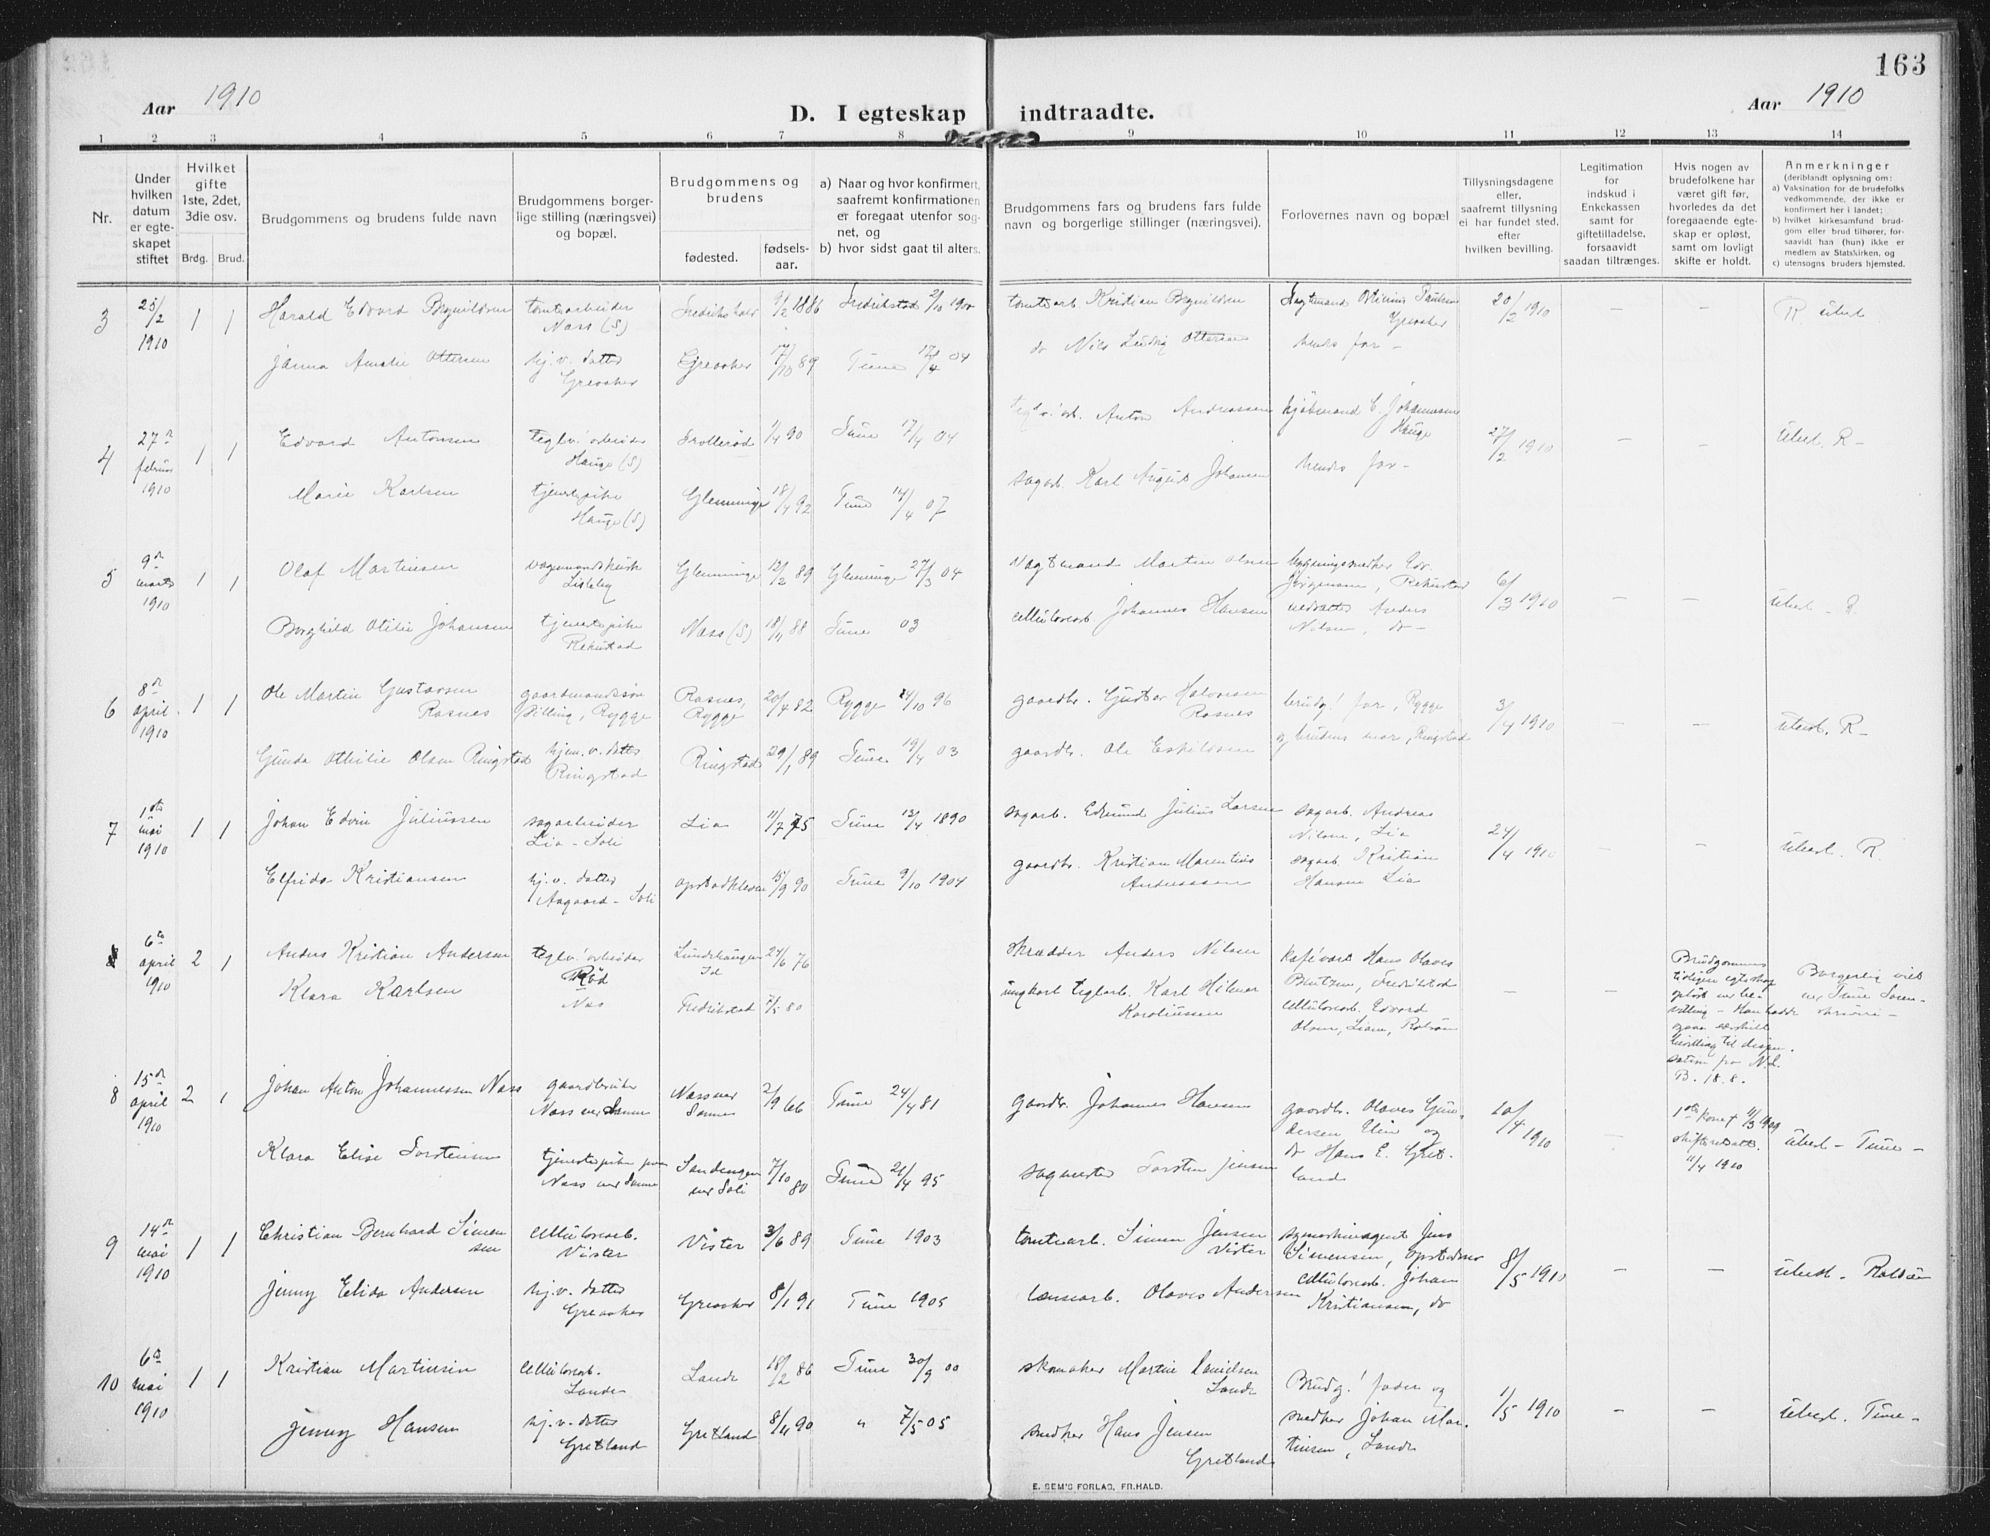 163
Aar 1910
D. I egteskap indtraadte.
Aar 1910
1 2 3 4 5 6 7 8 9 10 11 12 13 14
Nr.
Under hvilken datum er egteskapet stiftet
Hvilket gifte 1ste, 2det, 3die osv.
Brdg. Brud.
Brudgommens og brudens fulde navn
Brudgommens borgerlige stilling (næringsvei) og bopæl.
Brudgommens og brudens
fødested.
fødselsaar.
a) Naar og hvor konfirmert, saafremt konfirmationen er foregaat utenfor sognet, og
b) hvor sidst gaat til alters.
Brudgommens fars og brudens fars fulde navn og borgerlige stillinger (næringsvei).
Forlovernes navn og bopæl
Tillysningsdagene eller, saafremt tillysning ei har fundet sted, efter hvilken bevilling.
Legitimation for indskud i Enkekassen samt for giftetilladelse, forsaavidt saadan tiltrænges.
Hvis nogen av brudefolkene har været gift før, hvorledes da det foregaaende egteskap er opløst, samt om lovligt skifte er holdt.
Anmerkninger
(deriblandt oplysning om:
a) Vaksination for de brudefolks vedkommende, der ikke er konfirmert her i landet;
b) hvilket kirkesamfund brudgom eller brud tilhører, forsaavidt han (hun) ikke er medlem av Statskirken, og
c) utensogns bruders hjemsted.
3 25/2 1910 1 1 Harald Edvard Brynildsen tomtearbeider Næss (S) Fredrikshald 9/2 1886 Fredrikstad 2/10 1900 tomtearb. Kristian Brynildsen Greaaker 20/2 1910 — — R
Janna Amalie Ottersen hj. v. datter Greaaker Greaaker 17/10 89 Tune 17/4 04 do Nils Ludvig Ottersen hendes far —
4 27de februar 1910 1 1 Edvard Antonsen teglv. arbeider Hauge (S) Trollerød 1/4 90 Tune 17/4 04 teglv. arb. Anton Andreassen kjøbmand C. Johannesen Hauge 27/2 1910 — — R —
Marie Karlsen tjenestepike Hauge (S) Glemminge 18/4 92 Tune 14/4 07 sagarb. Karl August Johansen hendes far —
5 9de marts 1910 1 1 Olaf Martinsen Lisleby Glemminge 12/2 89 Glemminge 27/3 04 Vagtmand Martin Olsen bygningssnedker Edv. Jørgensen, Rekustad 6/3 1910 — — R
Borghild Otilie Johansen tjenestepike Rekustad Næss (S) 18/11 88 Tune 03 cellulosearb. Johannes Hansen Anders Nilsen, do —
6 8de april 1910 1 1 Ole Martin Gustavsen Rosnes gaardmandssøn Dilling, Rygge Rosnes, Rygge 20/4 82 Rygge 4/10 96 gaardbr. Gustav Halvorsen Rosnes brudg! far, Rygge 3/4 1910 — — R —
Gunda Othilie Olsen Ringstad hjem. v. datter Ringstad Ringstad 29/1 89 Tune 19/4 03 gaardbr. Ole Eskildsen og brudens mor, Ringstad
7 1ste mai 1910 1 1 Johan Edvin Juliussen sagarbeider Lia - Soli Lia 11/7 75 Tune 13/4 1890 sagarb. Edmund Julius Larsen sagarb. Andreas Nilsen, Lia 24/4 1910 — — R.
Elfrida Kristiansen hj. v. datter Aagaard - Soli Opstadkleven 15/9 90 Tune 9/10 1904 gaardbr. Kristian Marentius Andreassen sagarb. Kristian Hansen Lia
6te april 1910 2 1 Anders Kristian Andersen teglv. arbeider Rød Lundehaugen Id 24/6 76 Skrædder Anders Nilsen Kafévært Hans Olaves Bentzen, Fredrikstad — — Brudgommens tidligere egteskap opløst ved bevilling — Han hadde særskilt bevilling til dispensation fra N. L. B. 18. 8. Borgerlig viet
Klara Karlsen Næs Fredrikstad 7/5 80 ungkarl teglarb. Karl Hilmar Karoliussen cellulosearb. Edvard Olsen
8 15de april 1910 2 1 Johan Anton Johannessen Næss gaardbruker Næss ved Sanne Næss ved Sanne 2/9 66 Tune 24/4 81 gaardbr. Johannes Hansen gaardbr. Olaves Gundersen og 10/4 1910 — 1ste kone † 4/3 1909 skifteretsatt. 11/4 1910 Tune —
Klara Elise Torstensen tjenestepike paa Næss ved Sanne Sandengen ved Soli 7/10 80 Tune 21/4 95 sagmester Torsten Jensen do Hans E. Gretland
9 14de mai 1910 1 1 Christian Bernhard Simensen cellulosearb. Vister Vister 3/6 89 Tune 1903 tomtearb. Simen Jensen Vister symaskinagent Jens Simensen, 8/5 1910 — — Rolvsøi
Jenny Elida Andersen hj. v. datter Greaaker Greaaker 8/1 91 Tune 1905 lænsearb. Olaves Andersen cellulosearb. Johan Kristiansen, do
10 6te mai 1910 1 1 Kristian Martinsen cellulosearb. Lande Lande 18/2 86 Tune 30/9 00 skomaker Martin Danielsen Lande Brudg! fader og 1/5 1910 — — Tune —
Jenny Hansen hj. v. datter Gretland Gretland 8/4 90 " 7/5 05 snedker Hans Jensen Gretland snedker Johan Martinsen, Lande
E. SEM'S FORLAG, FR.HALD.